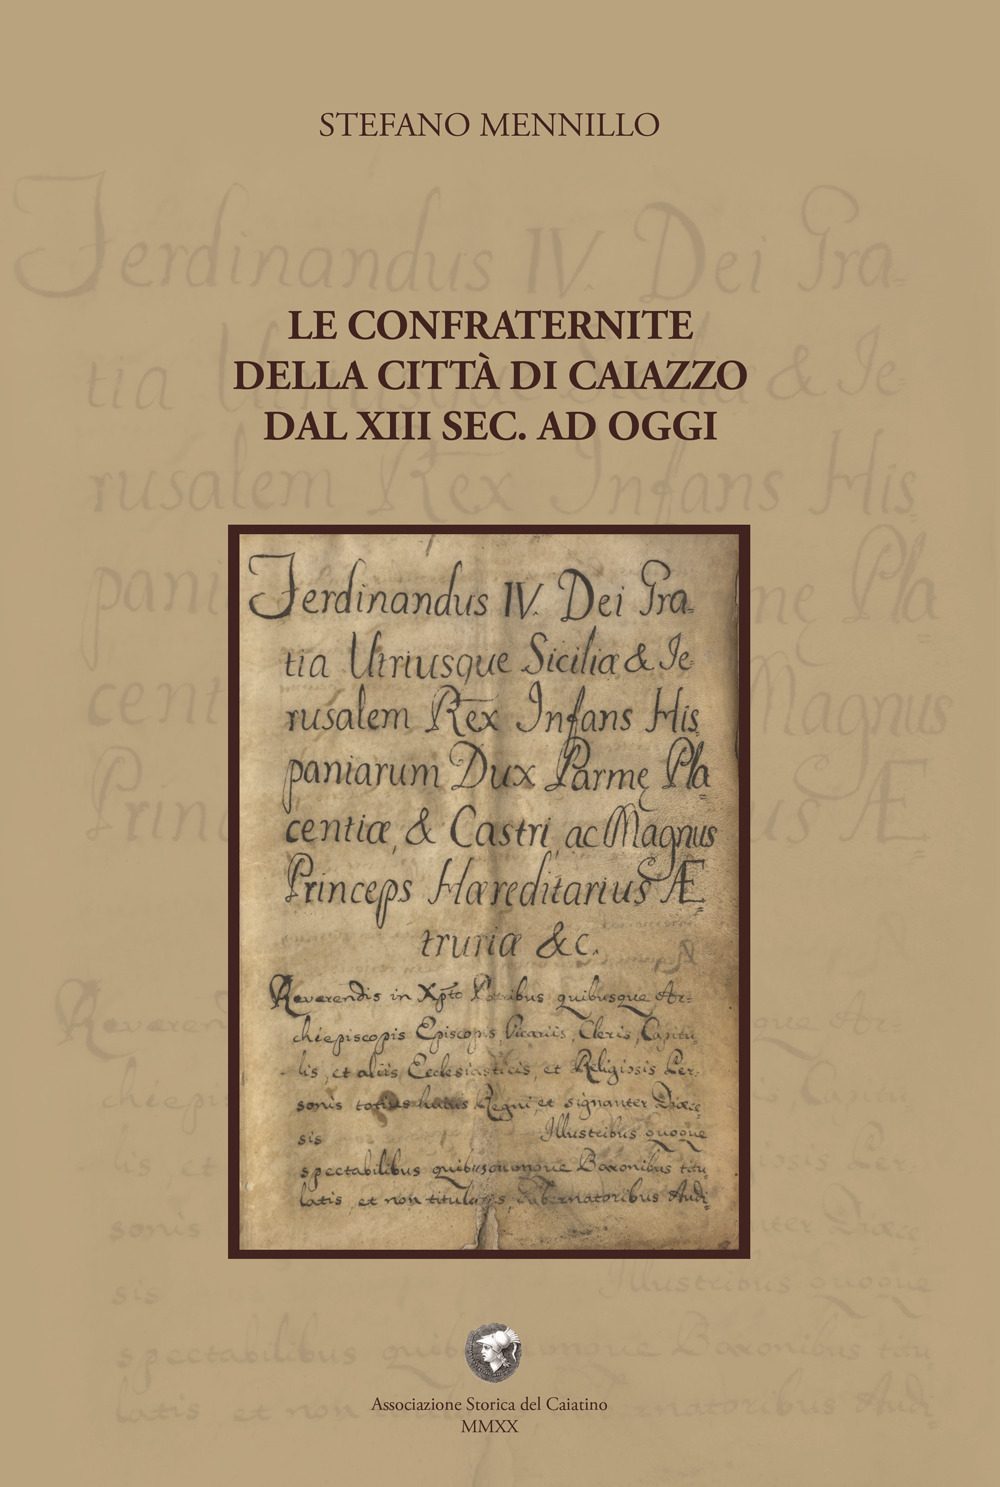 STEFANO MENNILLO
LE CONFRATERNITE
DELLA CITTÀ DI CAIAZZO
DAL XIII SEC. AD OGGI
Ferdinandus IV. Dei Gra
tia Utriusque Siciliæ & Je
rusalem Rex Infans His
paniarum Dux Parmę Pla
centiæ, & Castri, ac Magnus
Princeps Hæreditarius Æ
truriæ &c.
Reverendis in Xpto Patribus quibusque Ar=
chiepiscopis Episcopis, Vicariis, Cleris, Capitu
lis, et aliis Ecclesiasticis, et Religiosis Per
sonis totius huius Regni, et signanter
sis Illustribus quoque
spectabilibus quibuscumque Baronibus titu
latis, et non titulatis, Gubernatoribus Audi
Associazione Storica del Caiatino
MMXX